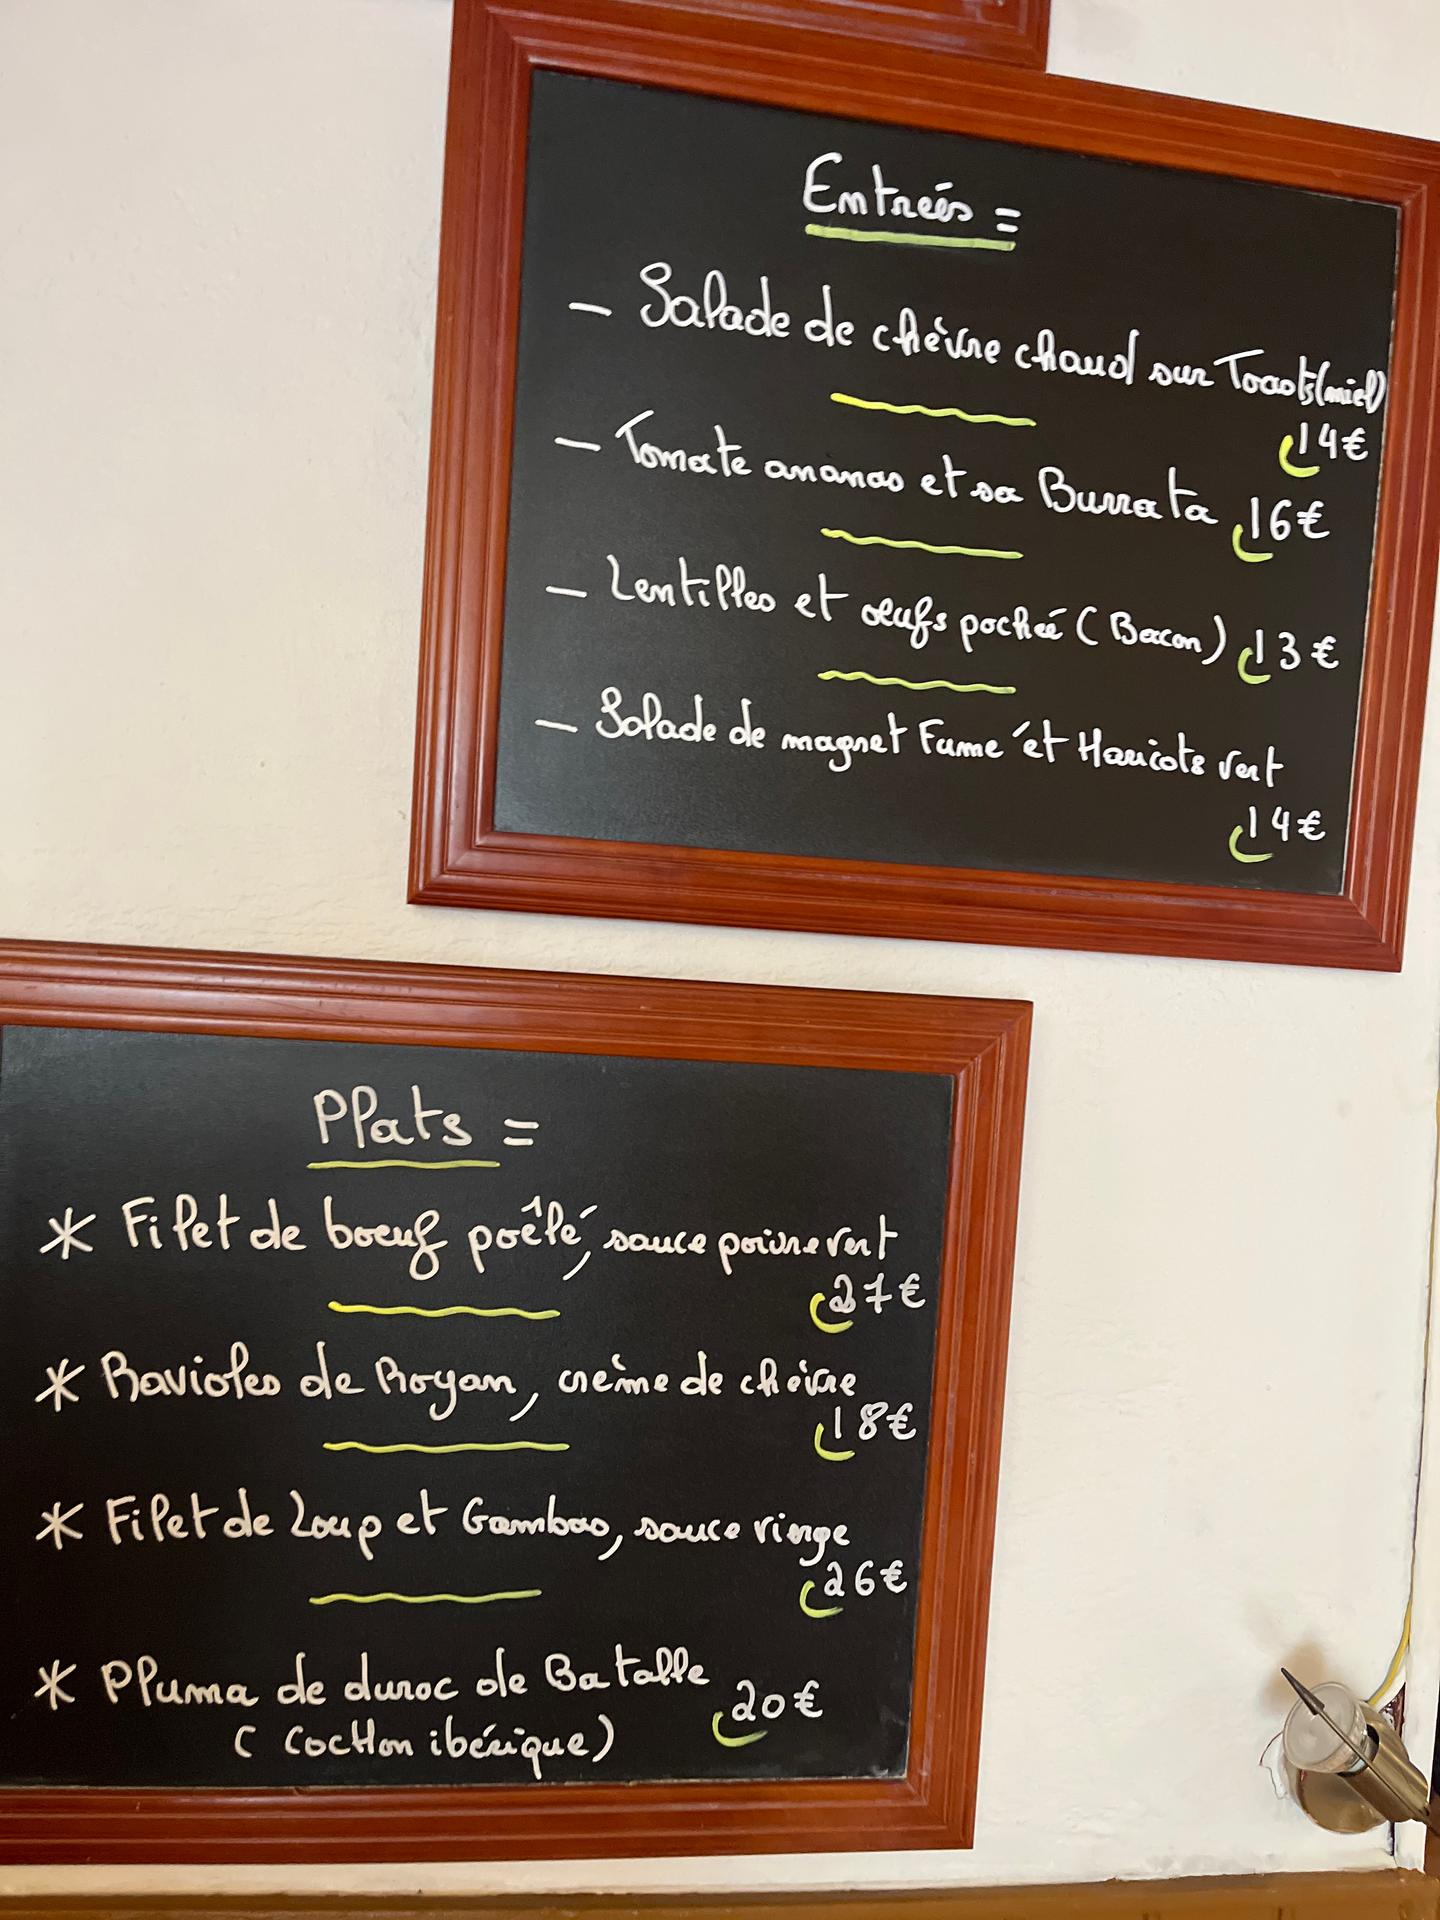 Entrées =
- Salade de chèvre chaud sur Toasts (miel)
14€
- Tomate ananas et sa Burrata 16€
- Lentilles et œufs poché (Bacon) 13€
- Salade de magret Fumé et Haricots vert
14€
Plats =
* Filet de bœuf poêlé, sauce poivre vert
27€
* Ravioles de Royan, crème de chèvre
18€
* Filet de Loup et Gambas, sauce vierge
26€
* Pluma de duroc de Batalle 20€
( Cochon ibérique )